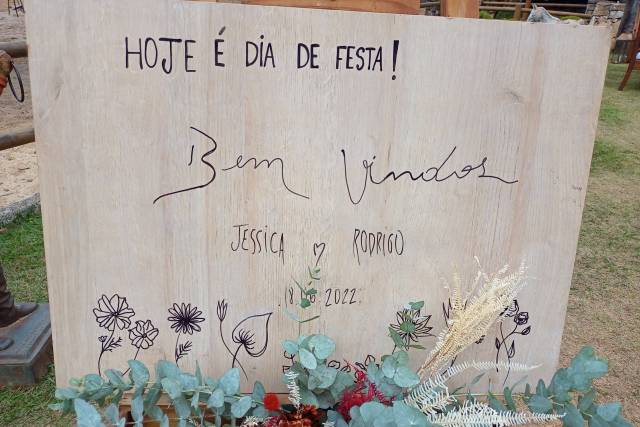 HOJE É DIA DE FESTA!
Bem Vindos
JESSICA ♡ RODRIGO